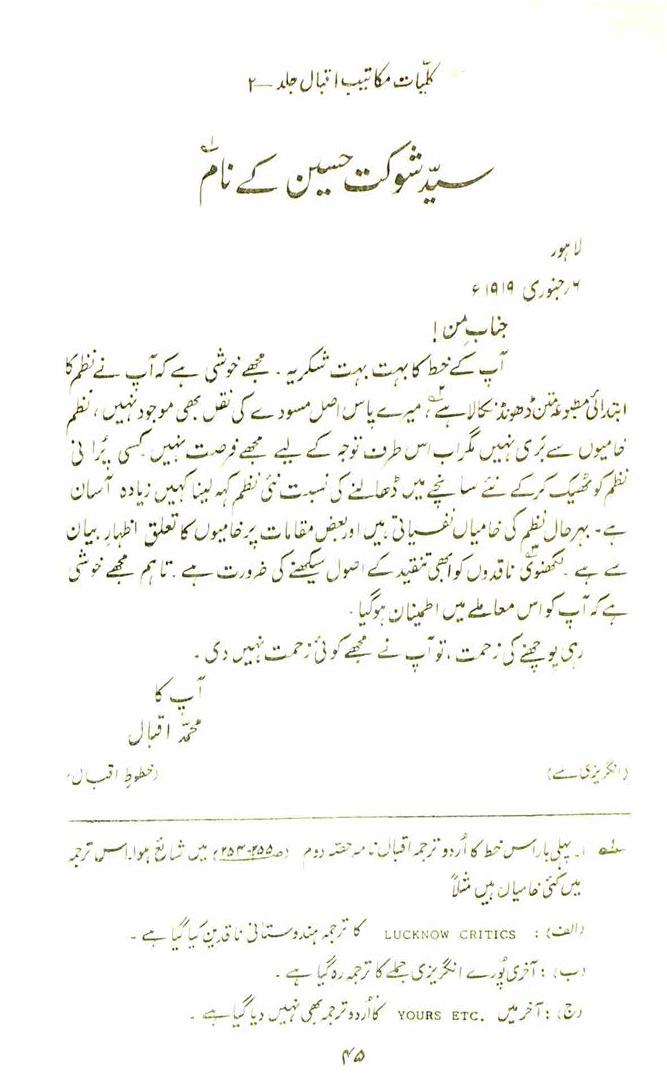 کلیّات مکاتیب اقبال جلد ـ ۲
سیّد شوکت حسین کے نام ؎۱
لاہور
۶؍جنوری ۱۹۱۹ء
جنابِ من !
آپ کے خط کا بہت بہت شکریہ ۔ مجھے خوشی ہے کہ آپ نے نظم کا
ابتدائی مطبوعہ متن ڈھونڈ نکالا ہے؎۲، میرے پاس اصل مسودے کی نقل بھی موجود نہیں، نظم
خامیوں سے بَری نہیں مگر اب اس طرف توجہ کے لیے مجھے فرصت نہیں۔ کسی پُرانی
نظم کو ٹھیک کرکے نئے سانچے میں ڈھالنے کی نسبت نئی نظم کہہ لینا کہیں زیادہ آسان
ہے۔ بہرحال نظم کی خامیاں نفسیاتی ہیں اور بعض مقامات پر خامیوں کا تعلق اظہارِ بیان
سے ہے ۔ لکھنوی؎۳ ناقدوں کو ابھی تنقید کے اصول سیکھنے کی ضرورت ہے ۔ تاہم مجھے خوشی
ہے کہ آپ کو اس معاملے میں اطمینان ہوگیا ۔
رہی پوچھنے کی زحمت، تو آپ نے مجھے کوئی زحمت نہیں دی ۔
آپ کا
محمدؐ اقبال
(انگریزی سے) (خطوطِ اقبال)
؎۱ ۱۔ پہلی بار اس خط کا اُردو ترجمہ اقبال نامہ حصّہ دوم (صـ ۲۵۵-۲۵۴) میں شایع ہوا۔ اس ترجمہ
میں کئی خامیاں ہیں مثلاً
(الف) : LUCKNOW CRITICS کا ترجمہ ہندوستانی ناقدین کیا گیا ہے ۔
(ب) : آخری پُورے انگریزی جملے کا ترجمہ رہ گیا ہے ۔
(ج) : آخر میں YOURS ETC. کا اُردو ترجمہ بھی نہیں دیا گیا ہے ۔
۴۵